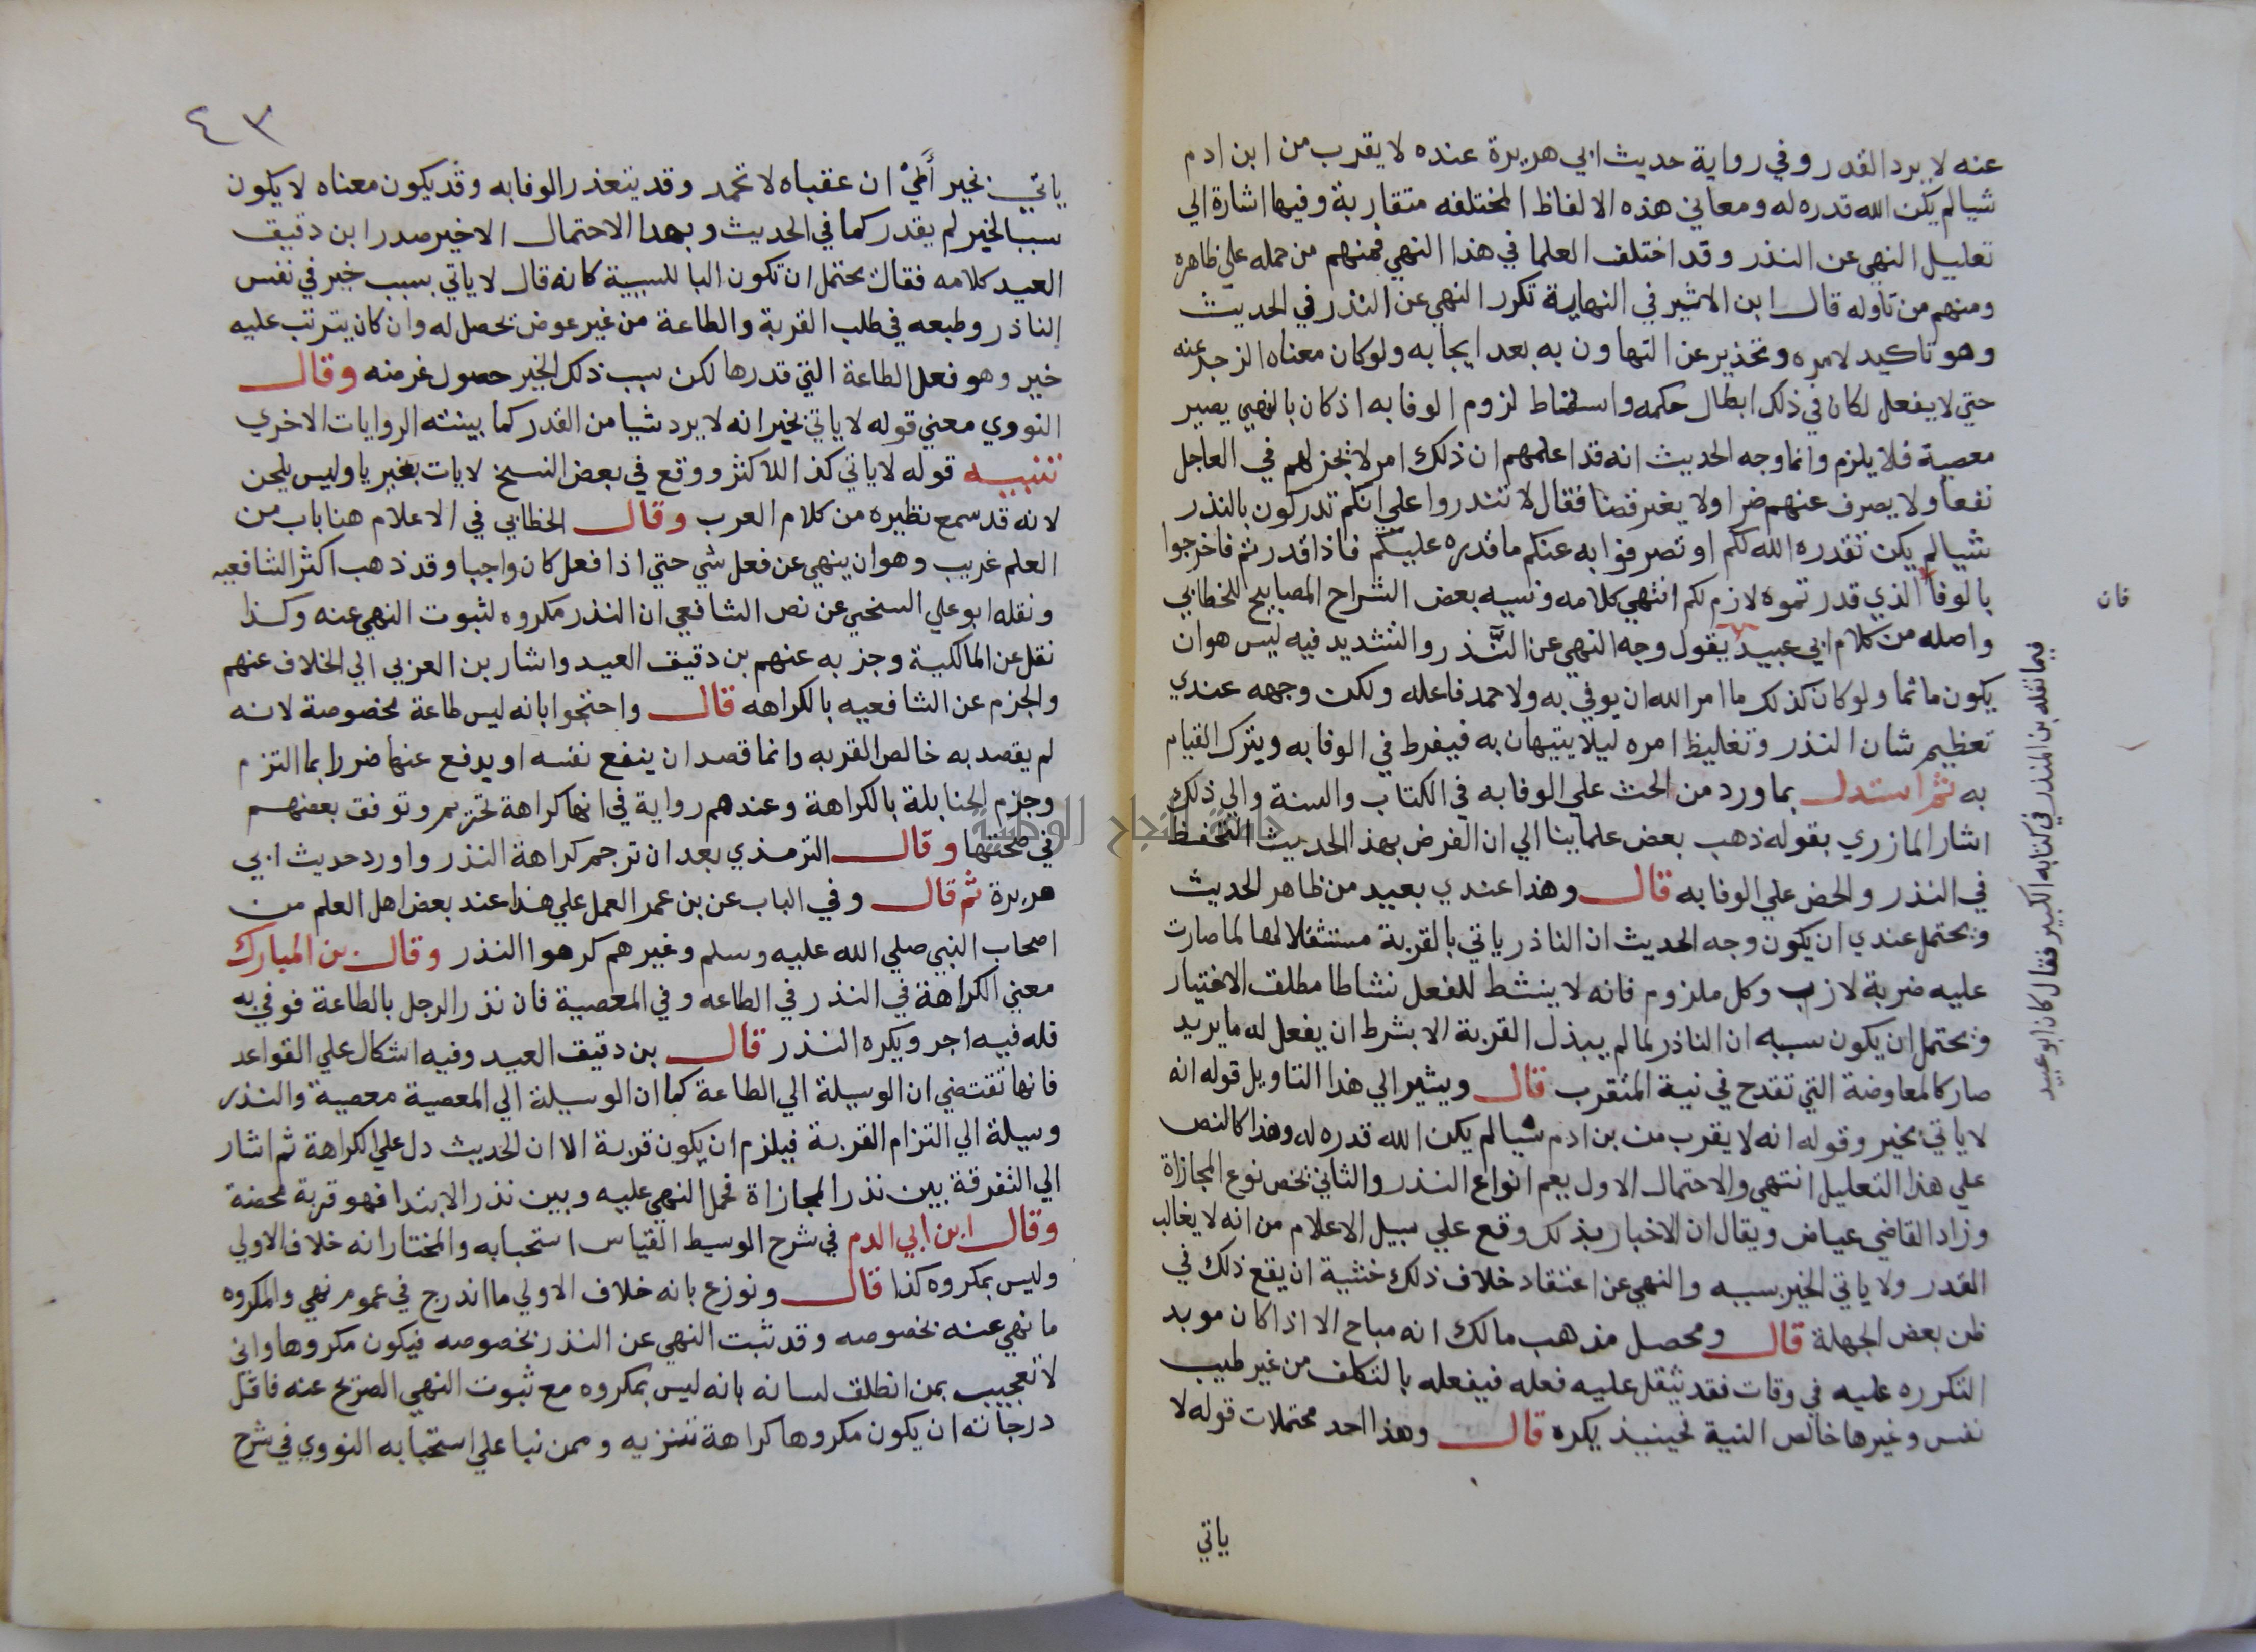 عنه لا يرد القدر وفي رواية حديث ابي هريرة عنده لا يقرب من ابن ادم
شيا لم يكن الله قدره له ومعاني هذه الالفاظ المختلفه متقاربة وفيها اشارة الي
تعليل النهي عن النذر وقد اختلف العلما في هذا النهي فمنهم من حمله علي ظاهره
ومنهم من تاوله قال ابن الاثير في النهاية تكرر النهي عن النذر في الحديث
وهو تاكيد لامره وتحذير عن التهاون به بعد ايجابه ولو كان معناه الزجر عنه
حتي لا يفعل لكان في ذلك ابطال حكمه واسقاط لزوم الوفا به اذ كان بالنهي يصير
معصية فلا يلزم وانما وجه الحديث انه قد اعلمهم ان ذلك امر لا يجز لهم في العاجل
نفعا ولا يصرف عنهم ضرا ولا يغير قضا فقال لا تنذروا علي انكم تدركون بالنذر
شيا لم يكن تقدره الله لكم او تصرفوا به عنكم ما قدره عليكم فاذا قدرتم فاخرجوا
بالوفا الذي قدرتموه لازم لكم انتهي كلامه ونسبه بعض الشراح المصابيح للخطابي
فان
واصله من كلام ابي عبيد يقول وجه النهي عن النذر والتشديد فيه ليس هو ان
فيما نقله بن المنذر في كتابه الكبير فقال كان ابو عبيد
يكون ماثما ولو كان كذلك ما امر الله ان يوفي به ولا حمد فاعله ولكن وجهه عندي
تعظيم شان النذر وتغليظ امره ليلا يتهان به فيفرط في الوفا به ويترك القيام
به ثم استدل بما ورد من الحث علي الوفا به في الكتاب والسنة والي ذلك
اشار المازري بقوله ذهب بعض علماينا الي ان الغرض بهذ الحديث التحفظ
في النذر والحض علي الوفا به قال وهذا عندي بعيد من ظاهر الحديث
ويحتمل عندي ان يكون وجه الحديث ان الناذر ياتي بالقربة مستثقلا لها لما صارت
عليه ضربة لازب وكل ملزوم فانه لا ينشط للفعل نشاطا مطلق الاختيار
ويحتمل ان يكون سببه ان الناذر لما لم يبذل القربة الا بشرط ان يفعل له ما يريد
صار كالمعاوضة التي تقدح في نية المتقرب قال ويشير الي هذا التاويل قوله انه
لا ياتي بخير وقوله انه لا يقرب من بن ادم شيا لم يكن الله قدره له وهذا كالنص
علي هذا التعليل انتهي والاحتمال الاول يعم انواع النذر والثاني يخص نوع المجازاة
وزاد القاضي عياض ويقال ان الاخبار بذلك وقع علي سبيل الاعلام من انه لا يغالب
القدر ولا ياتي الخير سببه والنهي عن اعتقاد خلاف ذلك خشية ان يقع ذلك في
ظن بعض الجهلة قال ومحصل مذهب مالك انه مباح الا اذا كان موبد
التكرره عليه في وقات فقد يثقل عليه فعله فيفعله بالتكلف من غير طيب
نفس وغيرها خالص النية فحينيذ يكره قال وهذا احد محتملات قوله لا
ياتي
٤٣
ياتي بخير اي ان عقباه لا تحمد وقد يتعذر الوفا به وقد يكون معناه لا يكون
سببا لخير لم يقدر كما في الحديث وبهذا الاحتمال الاخير صدر ابن دقيق
العيد كلامه فقال يحتمل ان تكون البا للسببية كانه قال لا ياتي بسبب خير في نفس
الناذر وطبعه في طلب القربة والطاعة من غير عوض يحصل له وان كان يترتب عليه
خير وهو فعل الطاعة التي قدرها لكن سبب ذلك الخير حصول غرضه وقال
النووي معني قوله لا ياتي بخير انه لا يرد شيا من القدر كما بينته الروايات الاخري
تنبيه قوله لا ياتي كذا للاكثر ووقع في بعض النسخ لا يات بغير يا وليس بلحن
لانه قد سمع نظيره من كلام العرب وقال الخطابي في الاعلام هذا باب من
العلم غريب وهو ان ينهي عن فعل شي حتي اذا فعل كان واجبا وقد ذهب اكثر الشافعيه
ونقله ابو علي السنجي عن نص الشافعي ان النذر مكروه لثبوت النهي عنه وكذا
نقل عن المالكية وجز به عنهم بن دقيق العيد واشار بن العربي الي الخلاف عنهم
والجزم عن الشافعيه بالكراهه قال واحتجوا بانه ليس طاعة مخصوصة لانه
لم يقصد به خالص القربه وانما قصد ان ينفع نفسه او يدفع عنها ضررا بما التزم
وجزم الحنابلة بالكراهة وعندهم رواية في انها كراهة تحريم وتوقف بعضهم
في صحتها وقال الترمذي بعد ان ترجم كراهة النذر واورد حديث ابي
هريرة ثم قال وفي الباب عن بن عمر العمل علي هذا عند بعض اهل العلم من
اصحاب النبي صلي الله عليه وسلم وغيرهم كرهوا النذر وقال بن المبارك
معني الكراهة في النذر في الطاعه وفي المعصية فان نذر الرجل بالطاعة فوفي به
فله فيه اجر ويكره النذر قال بن دقيق العيد وفيه اشكال علي القواعد
فانها تقتضي ان الوسيلة الي الطاعة كما ان الوسيلة الي المعصية معصية والنذر
وسيلة الي التزام القربة فيلزم ان يكون قربة الا ان الحديث دل علي الكراهة ثم اشار
الي التفرقة بين نذر المجازاة فحمل النهي عليه وبين نذر الابتدا فهو قربة محضة
وقال ابن ابي الدم في شرح الوسيط القياس استحبابه والمختار انه خلاف الاولي
وليس بمكروه كذا قال ونوزع بانه خلاف الاولي ما اندرج في عموم نهي والمكروه
ما نهي عنه بخصوصه وقد ثبت النهي عن النذر بخصوصه فيكون مكروها واني
لا تعجب بمن انطلق لسانه بانه ليس بمكروه مع ثبوت النهي الصريح عنه فاقل
درجاته ان يكون مكروها كراهة تنزيه وممن نبا علي استحبابه النووي في شرح
جامعة النجاح الوطنية